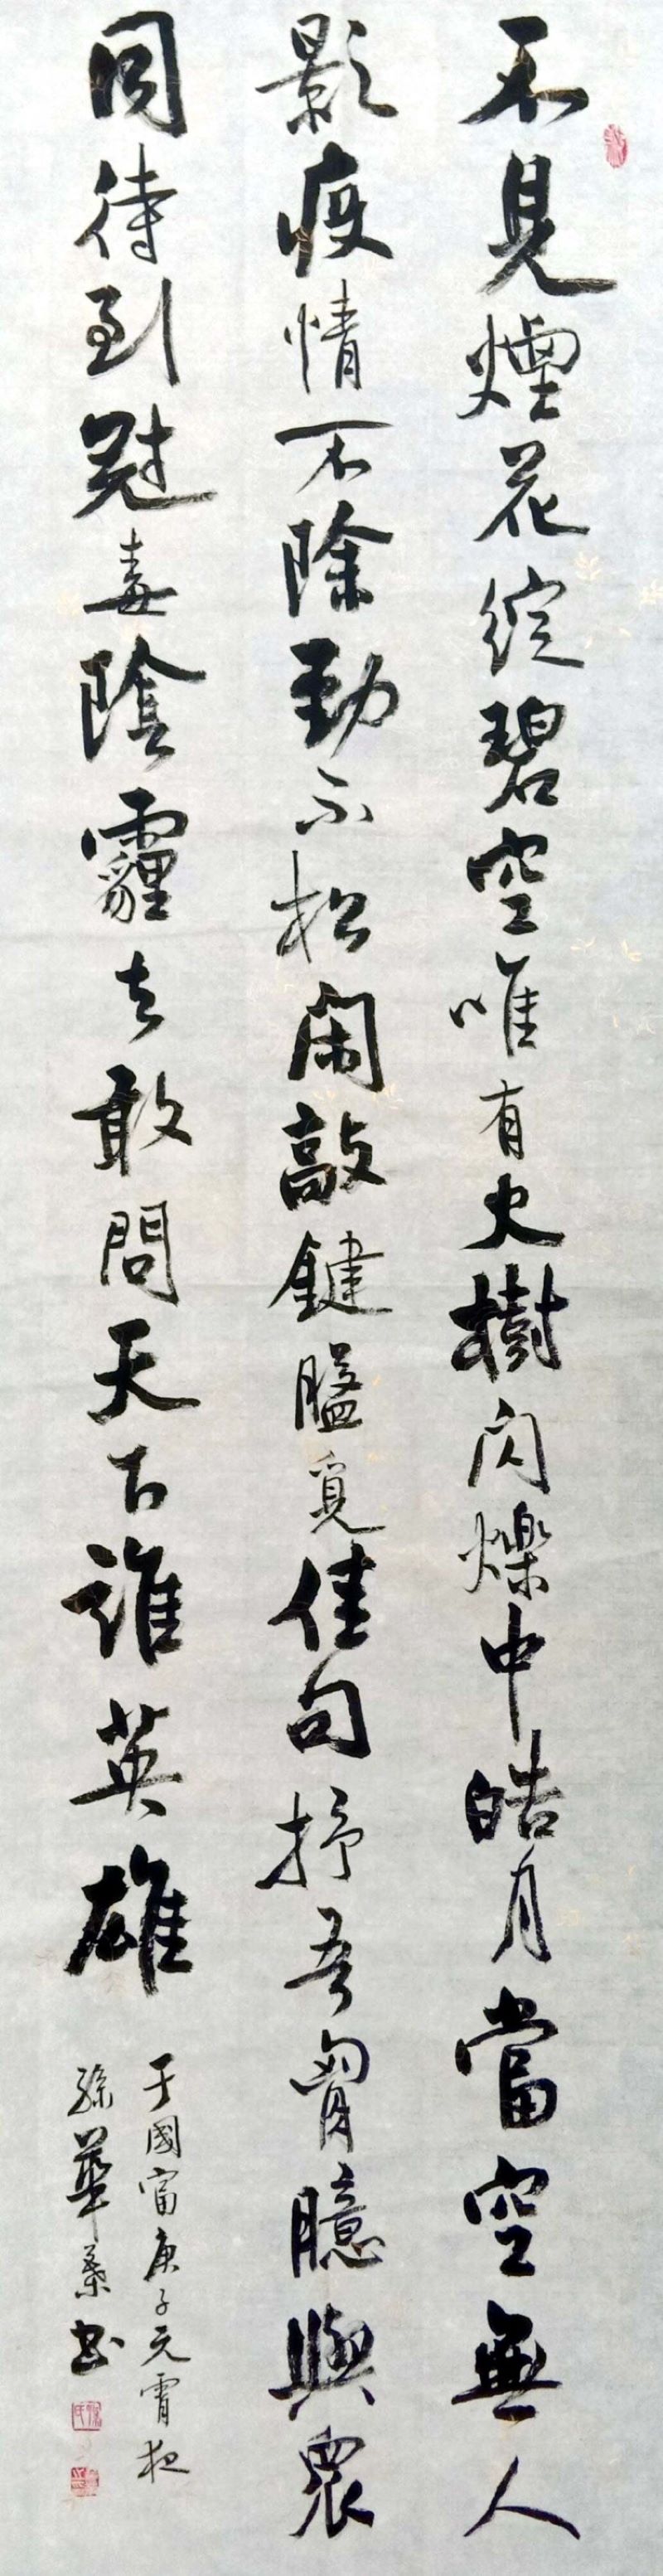 不見煙花綻碧空唯有火樹閃爍中皓月當空無人
影疫情不除勁不松閑敲鍵盤覓佳句抒吾胷臆與眾
同待到冠毒陰霾去敢問天下誰英雄
于國富庚子元宵夜
孫華業書